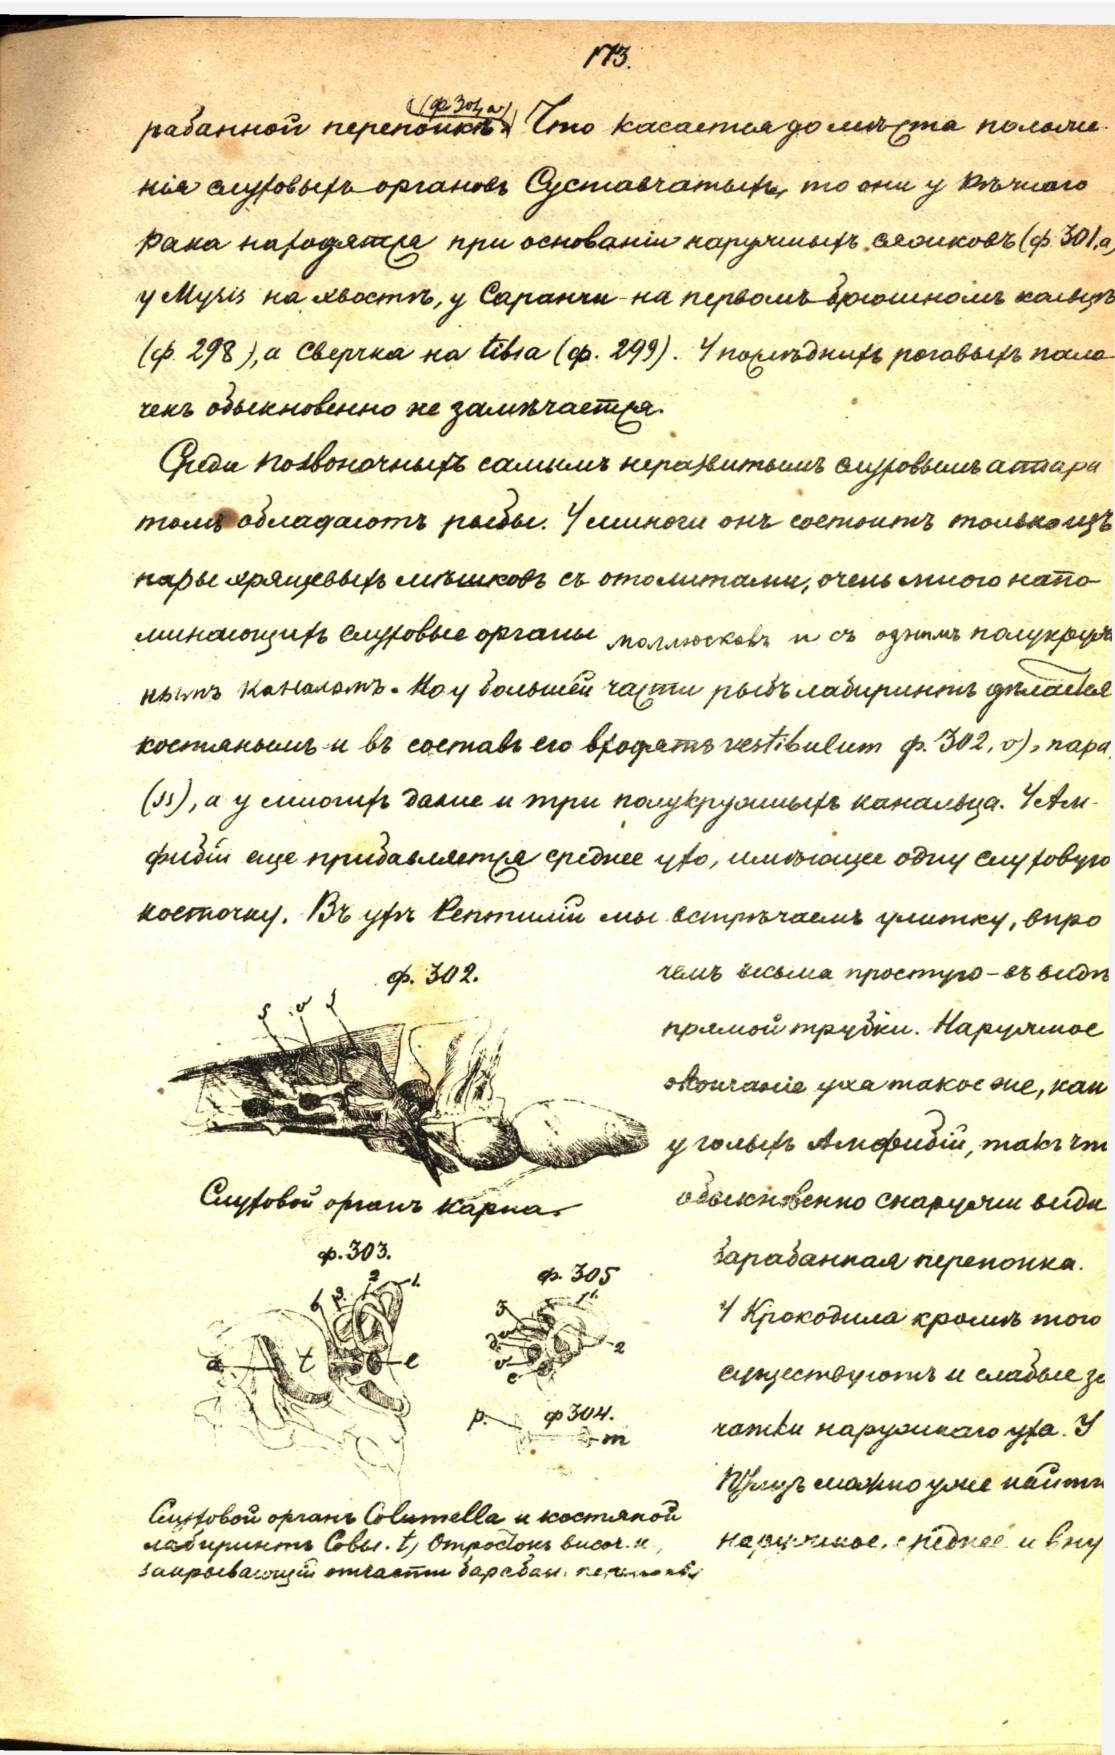 173.
(ф 304, а)
рабанной перепонкѣ.) Что касается до мѣста положе-
нія слуховыхъ органовъ Суставчатыхъ, то они у Рѣчнаго
Рака находятся при основаніи наружныхъ сяжковъ (ф. 301, а)
у Mysis на хвостѣ, у Саранчи на первомъ брюшномъ кольцѣ
(ф. 298), а Сверчка на tibia (ф. 299). У послѣднихъ роговыхъ пало
чекъ обыкновенно не замѣчается.
Среди позвоночныхъ самымъ неразвитымъ слуховымъ аппара
томъ обладаютъ рыбы. У миноги онъ состоитъ только изъ
пары хрящевыхъ мѣшковъ съ отолитами, очень много напо-
минающихъ слуховые органы моллюсковъ и съ однимъ полукруж
нымъ каналомъ. Но у большей части рыбъ лабиринтъ дѣлается
костянымъ и въ составъ его входятъ vestibulum ф. 302, v), пара
(ss), а у многихъ даже и три полукружныхъ канальца. У Ам-
фибій еще прибавляется среднее ухо, имѣющее одну слуховую
косточку. Въ ухѣ Рептилій мы встрѣчаемъ улитку, впро
чемъ весьма простую - въ видѣ
прямой трубки. Наружное
окончаніе уха такое же, как
у голыхъ Амфибій, такъ чт
обыкновенно снаружи видн
барабанная перепонка.
У Крокодила кромѣ того
существуютъ и слабые за
чатки наружнаго уха. У
Птицъ можно уже найти
наружное, среднее и вну
ф. 302.
s v s
Слуховой органъ карпа.
ф. 303.
6 3. 2 1.
a t e
ф. 305
3 1. 2
a v c
ф 304.
p. m
Слуховой органъ Columella и костяной
лабиринтъ Совы. t, Отростокъ височ. к,
закрывающій отчасти барабан. перепонку